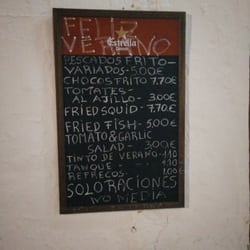 FELIZ
VERANO
Estrella
PESCADOS FRITO-
VARIADOS-5.00€
CHOCOS FRITO 7.70€
TOMATES-
AL AJILLO- 3.00€
FRIED SQUID- 7.70€
FRIED FISH-5.00€
TOMATO & GARLIC
SALAD - 3.00€
TINTO DE VERANO-1.10
TANQUE - 1.10
REFRECOS- 1.00€
SOLO RACIONES
NO MEDIA